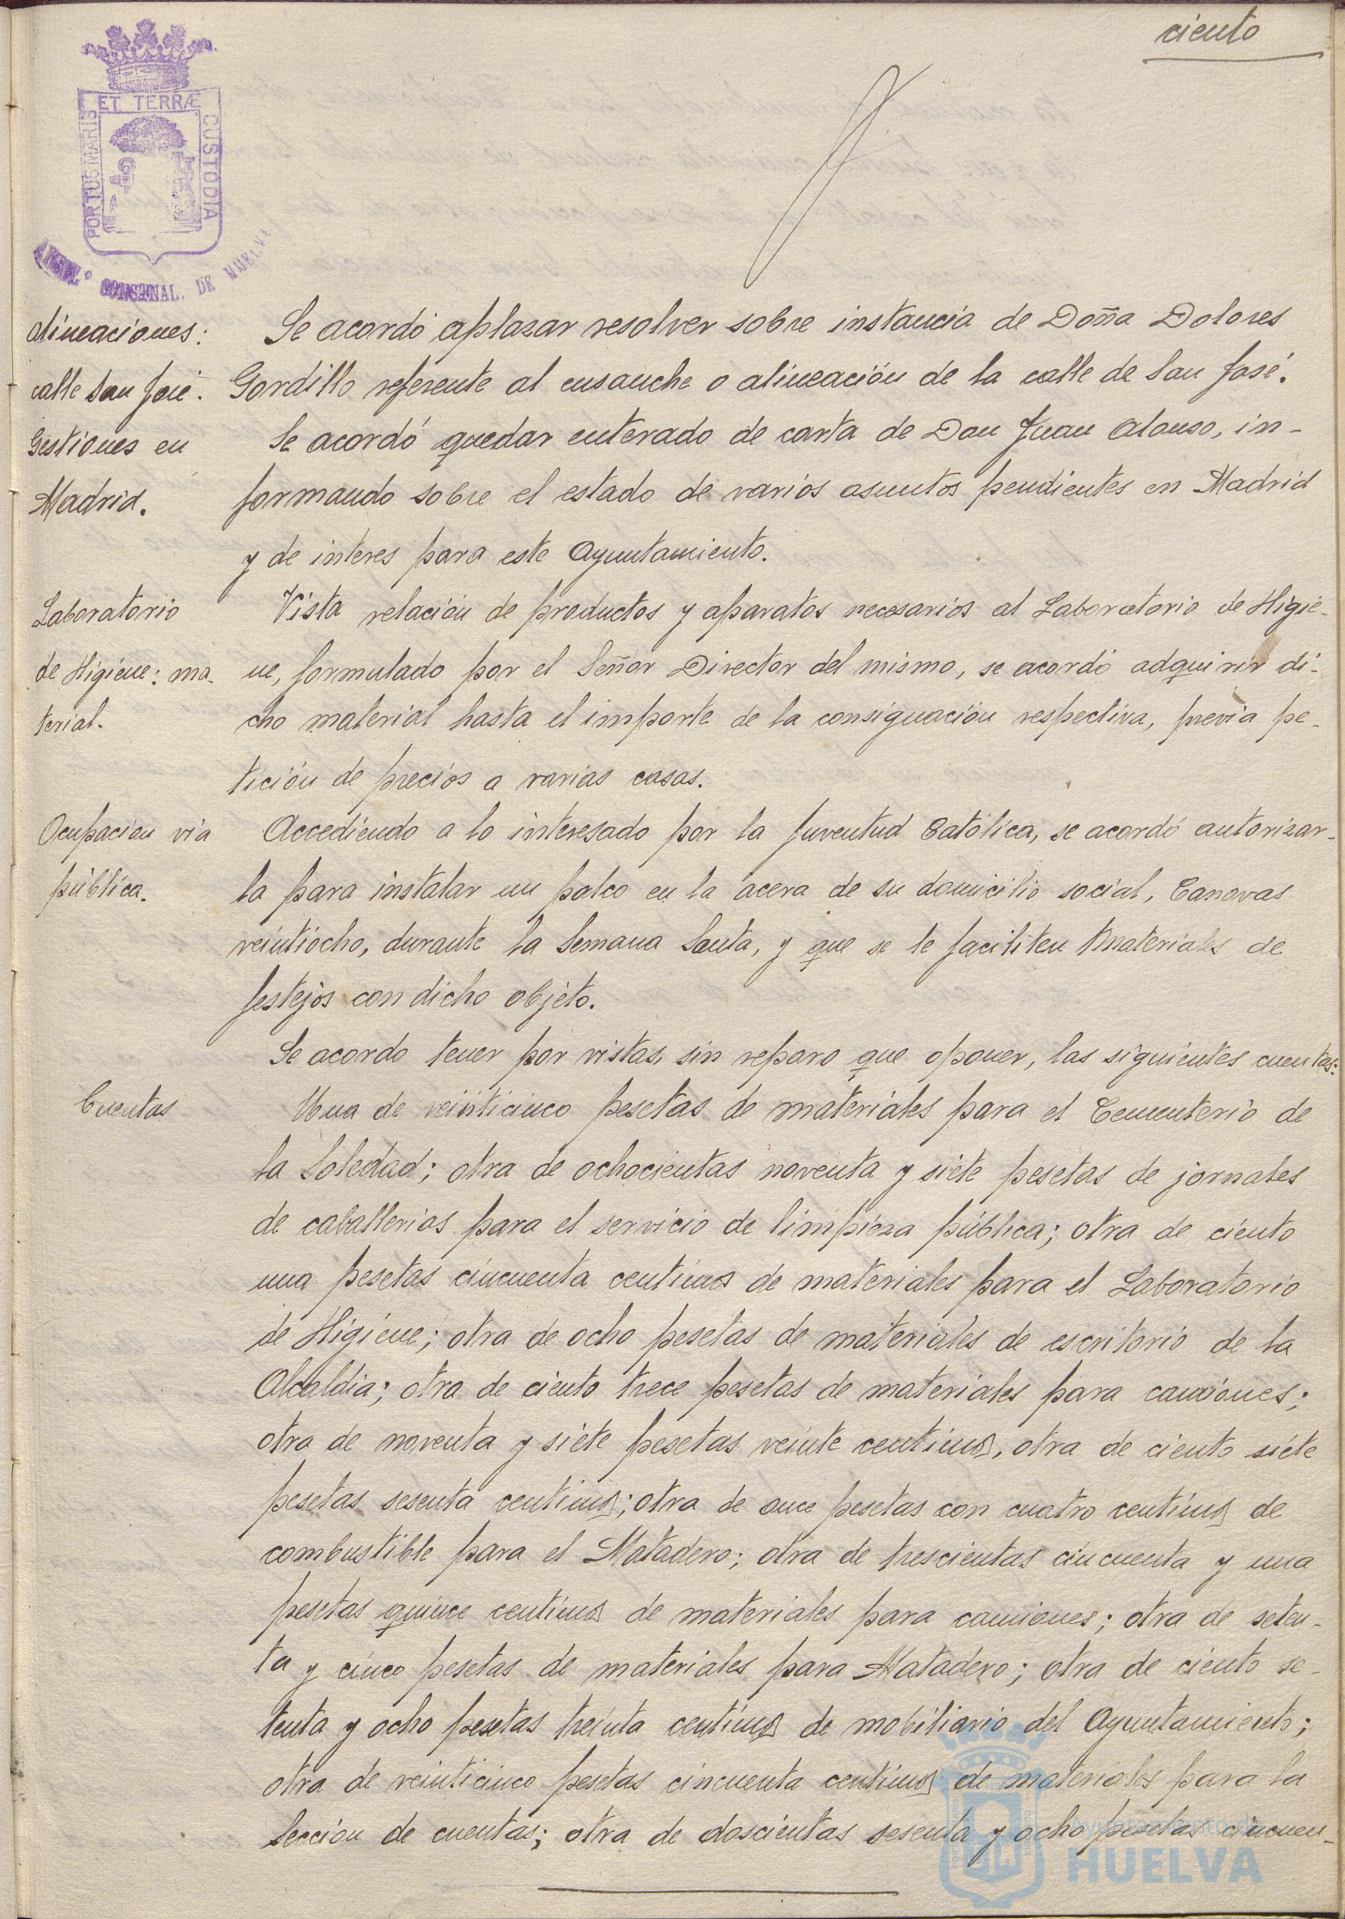 ciento
PORTUS MARIS
ET TERRÆ
CUSTODIA
DE HUELVA
Alineaciones:
calle San José.
Gestiones en
Madrid.
Se acordó aplazar resolver sobre instancia de Doña Dolores
Gordillo referente al ensanche o alineación de la calle de San José.
Se acordó quedar enterado de carta de Don Juan Alonso, in-
formando sobre el estado de varios asuntos pendientes en Madrid
y de interes para este Ayuntamiento.
Laboratorio
de Higiene: ma-
terial.
Vista relación de productos y aparatos necesarios al Laboratorio de Higie-
ne, formulado por el Señor Director del mismo, se acordó adquirir di-
cho material hasta el importe de la consignación respectiva, previa pe-
tición de precios a varias casas.
Ocupacion via
pública.
Accediendo a lo interesado por la Juventud Católica, se acordó autorizar-
la para instalar un palco en la acera de su domicilio social, Canovas
veintiocho, durante la Semana Santa, y que se le faciliten materiales de
festejos con dicho objeto.
Se acordo tener por vistas, sin reparo que oponer, las siguientes cuentas:
Cuentas
Una de veinticinco pesetas de materiales para el Cementerio de
la Soledad; otra de ochocientas noventa y siete pesetas de jornales
de caballerias para el servicio de limpieza pública; otra de ciento
una pesetas cincuenta centimos de materiales para el Laboratorio
de Higiene; otra de ocho pesetas de materiales de escritorio de la
Alcaldia; otra de ciento trece pesetas de materiales para camiones;
otra de noventa y siete pesetas veinte centimos, otra de ciento siete
pesetas sesenta centimos; otra de once pesetas con cuatro centimos de
combustible para el Matadero; otra de trescientas cincuenta y una
pesetas quince centimos de materiales para camiones; otra de seten-
ta y cinco pesetas de materiales para Matadero; otra de ciento se-
tenta y ocho pesetas treinta centimos de mobiliario del Ayuntamiento;
otra de veinticinco pesetas cincuenta centimos de materiales para la
Seccion de cuentas; otra de doscientas sesenta y ocho pesetas cincuen-
Ayuntamiento de
HUELVA